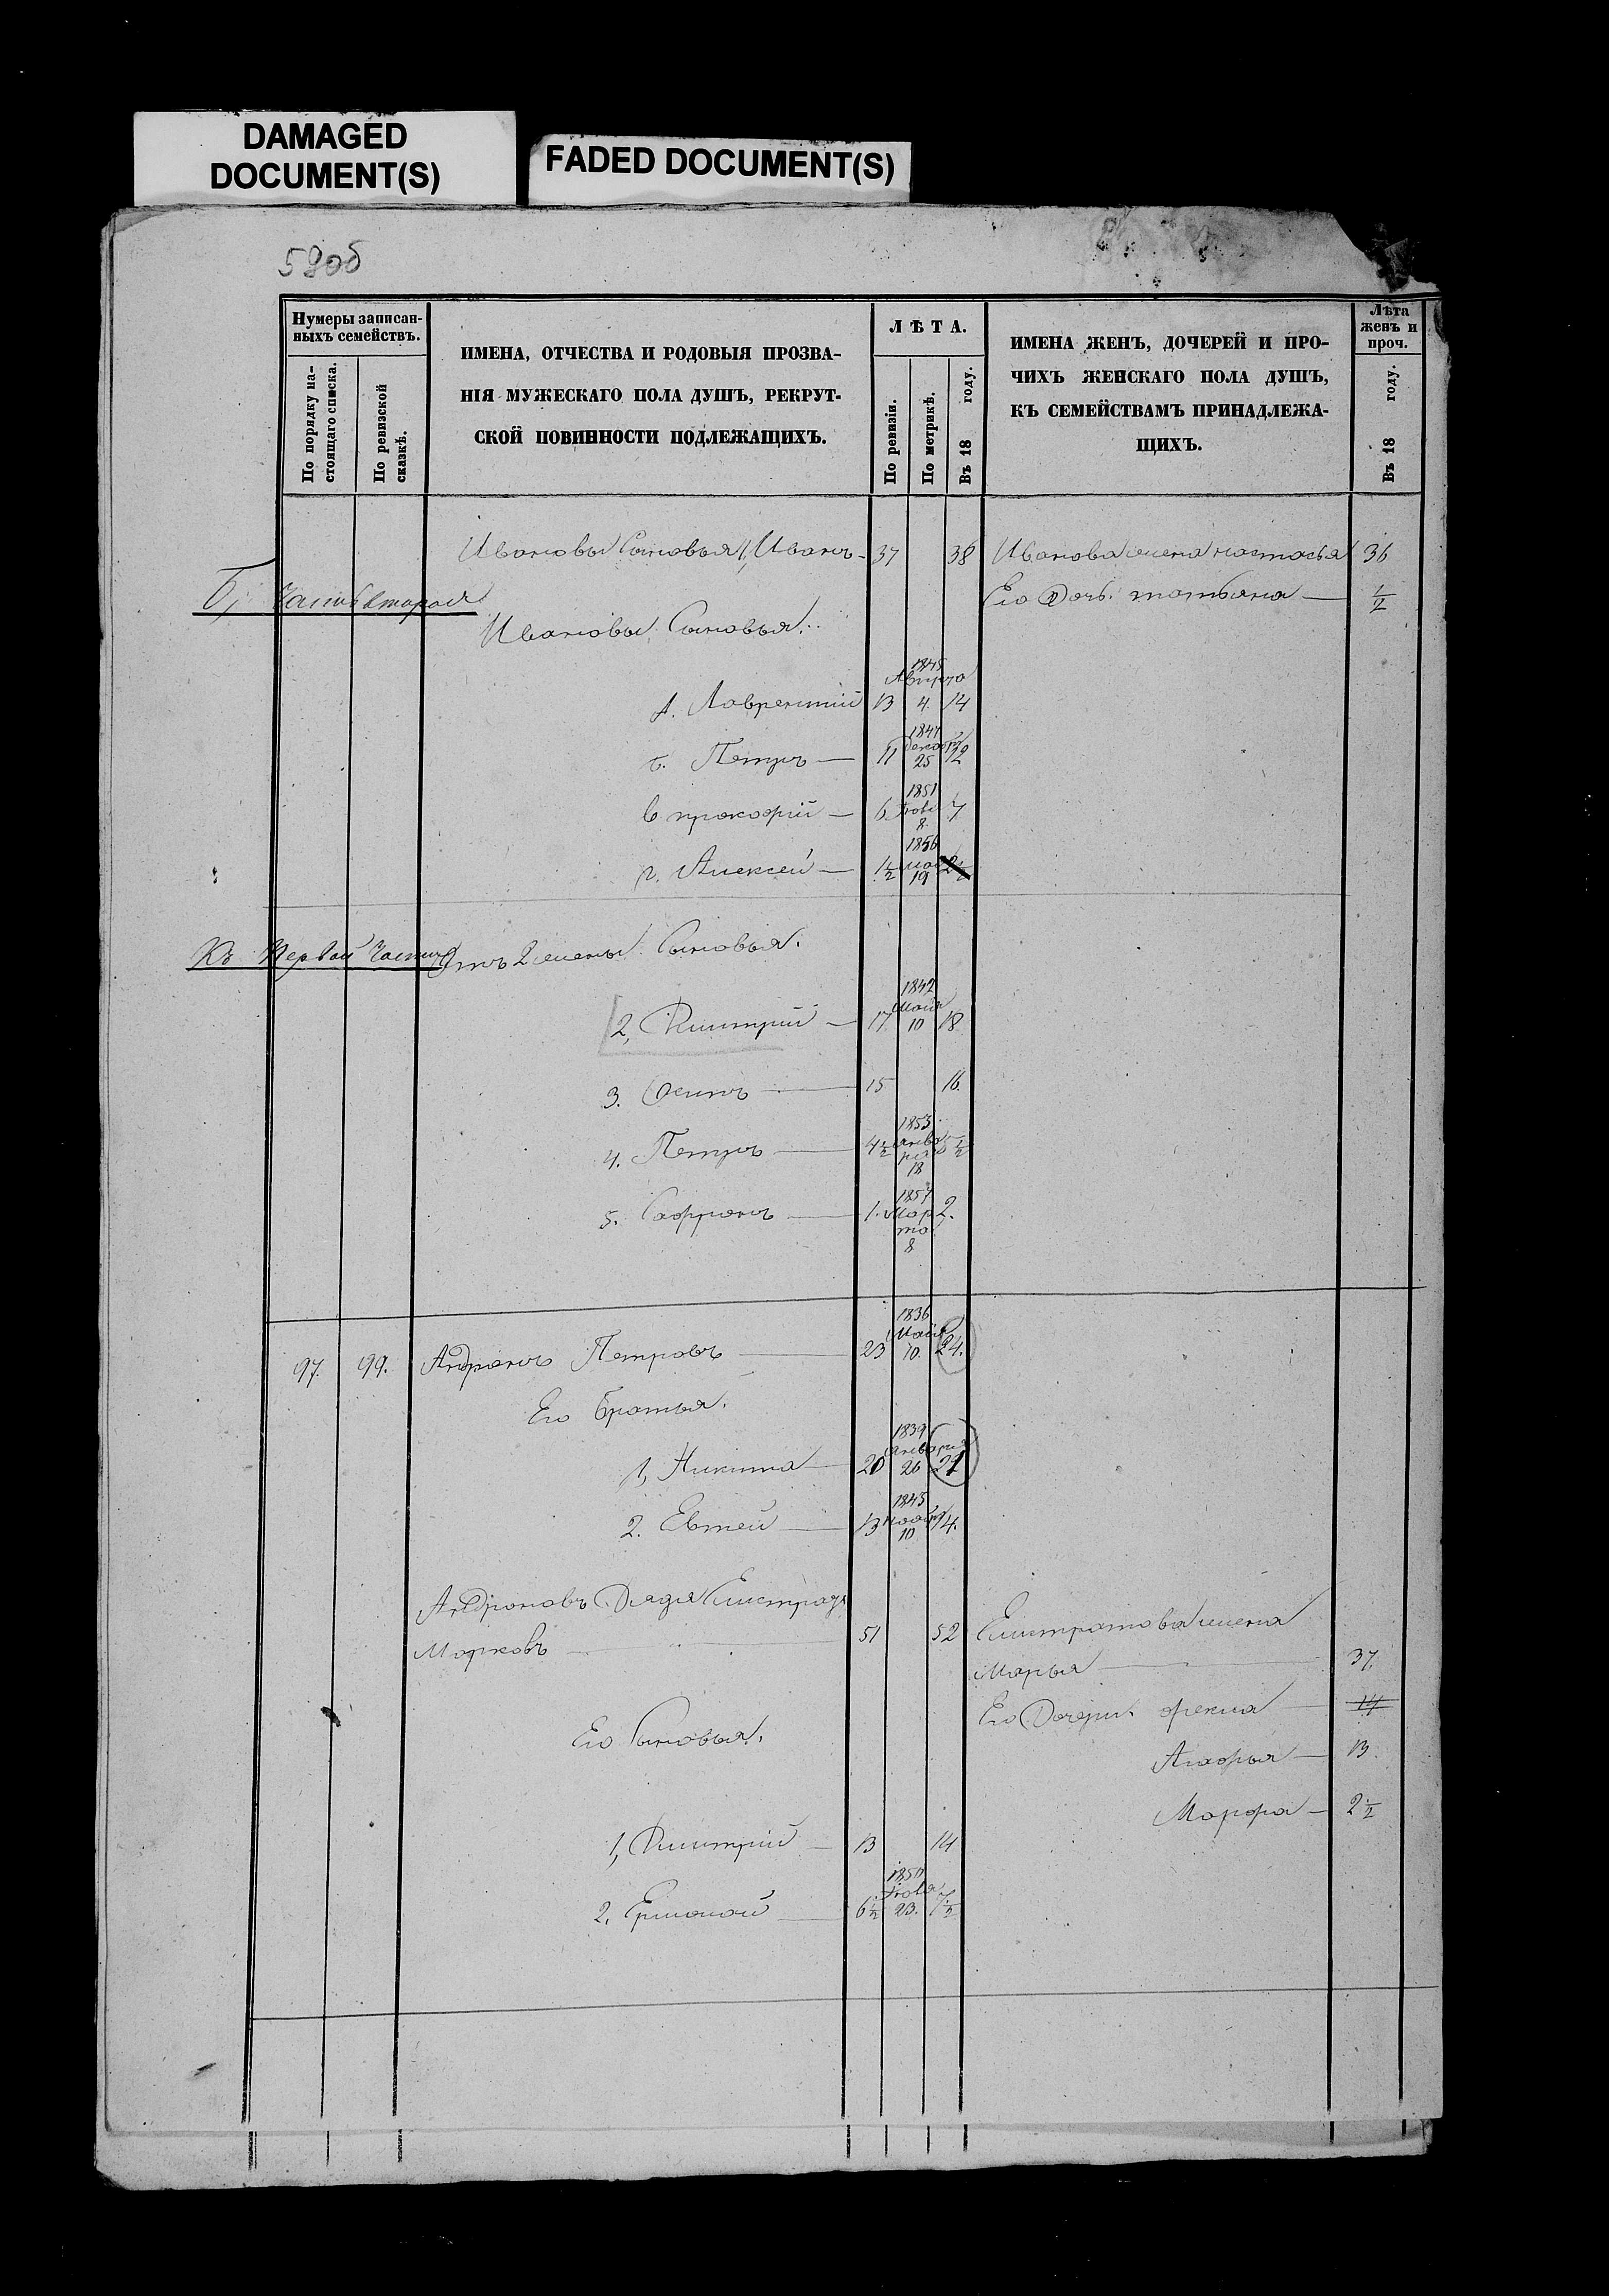 DAMAGED
DOCUMENT(S)
FADED DOCUMENT(S)
59об
Нумеры записан-
ныхъ семействъ.
По порядку на-
стоящаго списка.
По ревизской
сказкѣ.
ИМЕНА, ОТЧЕСТВА И РОДОВЫЯ ПРОЗВА-
НІЯ МУЖЕСКАГО ПОЛА ДУШЪ, РЕКРУТ-
СКОЙ ПОВИННОСТИ ПОДЛЕЖАЩИХЪ.
ЛѢТА.
По ревизіи.
По метрикѣ.
Въ 18 году.
ИМЕНА ЖЕНЪ, ДОЧЕРЕЙ И ПРО-
ЧИХЪ ЖЕНСКАГО ПОЛА ДУШЪ,
КЪ СЕМЕЙСТВАМЪ ПРИНАДЛЕЖА-
ЩИХЪ.
Лѣта
женъ и
проч.
Въ 18 году.
Ивановы Сыновья 1, Иванъ 37 38 Иванова жена настасья 36
Б, Часть вторая Его Дочь татьяна 1/2
Ивановы Сыновья:
1845
Августа
А. Лаврентий 13 4. 14
1847
Декабр
б. Петръ 11 25 12
1851
в прокофий 6 Июля 7
8.
1856
г. Алексей 1 1/2 мая 2 1/2
19
Къ Первой Части Отъ 2 жены Сыновья.
1842
Мая
2, Дмитрий 17 10 18
3. Осипъ 15 16.
1853
4. Петръ 4 1/2 Янва 5 1/2
ря
18
1857
5. Сафронъ 1. Мар 2.
та
8
1836
Мая
97. 99. Андронъ Петровъ 23 10. 24.
Его братья.
1839
Января
1, Никита 20 26 21
1845
2. Евтей 13 Ноябр 14.
10
Андроновъ Дядя Елистратъ
Марковъ 51 52 Елистратова жена
Марья 37.
Его Дочери. фекла 14
Его Сыновья.
Агафья 13.
Марфа 2 1/2
1, Дмитрий 13 14
Июля
2. Ермолай 6 1/2 23. 7 1/2